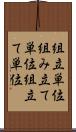 組立単位
組み立て
単位組立
て単位